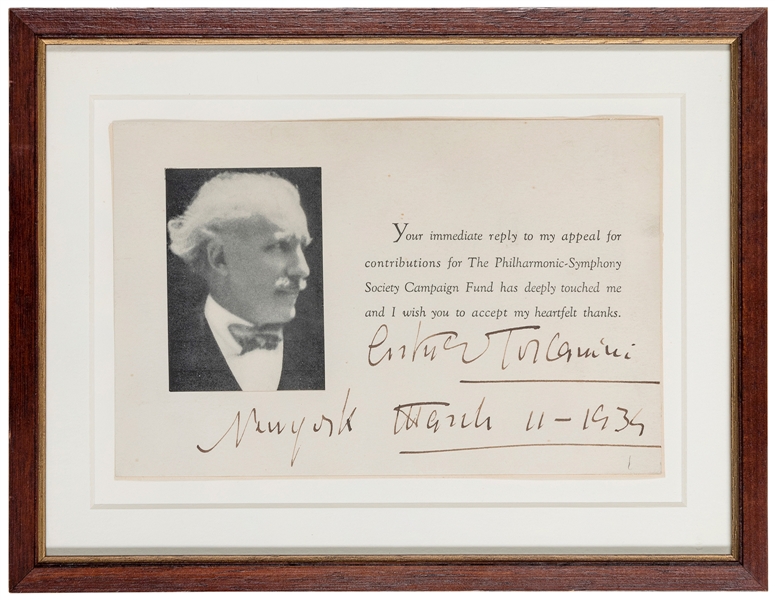 Your immediate reply to my appeal for
contributions for The Philharmonic-Symphony
Society Campaign Fund has deeply touched me
and I wish you to accept my heartfelt thanks.
Arturo Toscanini
Newyork March 11-1934